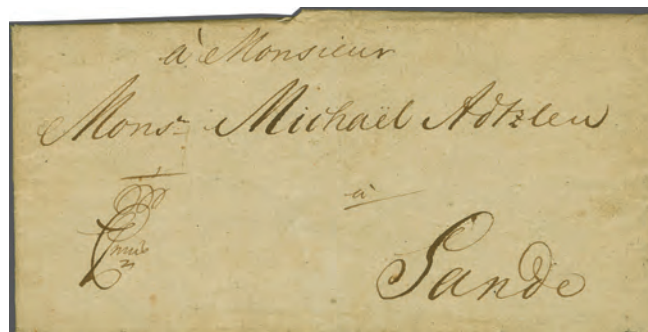 à Monsieur
Mons:r Michaël Adtzlew
à
Sande